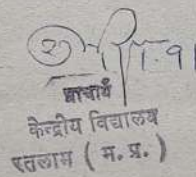 प्राचार्य
केन्द्रीय विद्यालय
रतलाम ( म. प्र. )